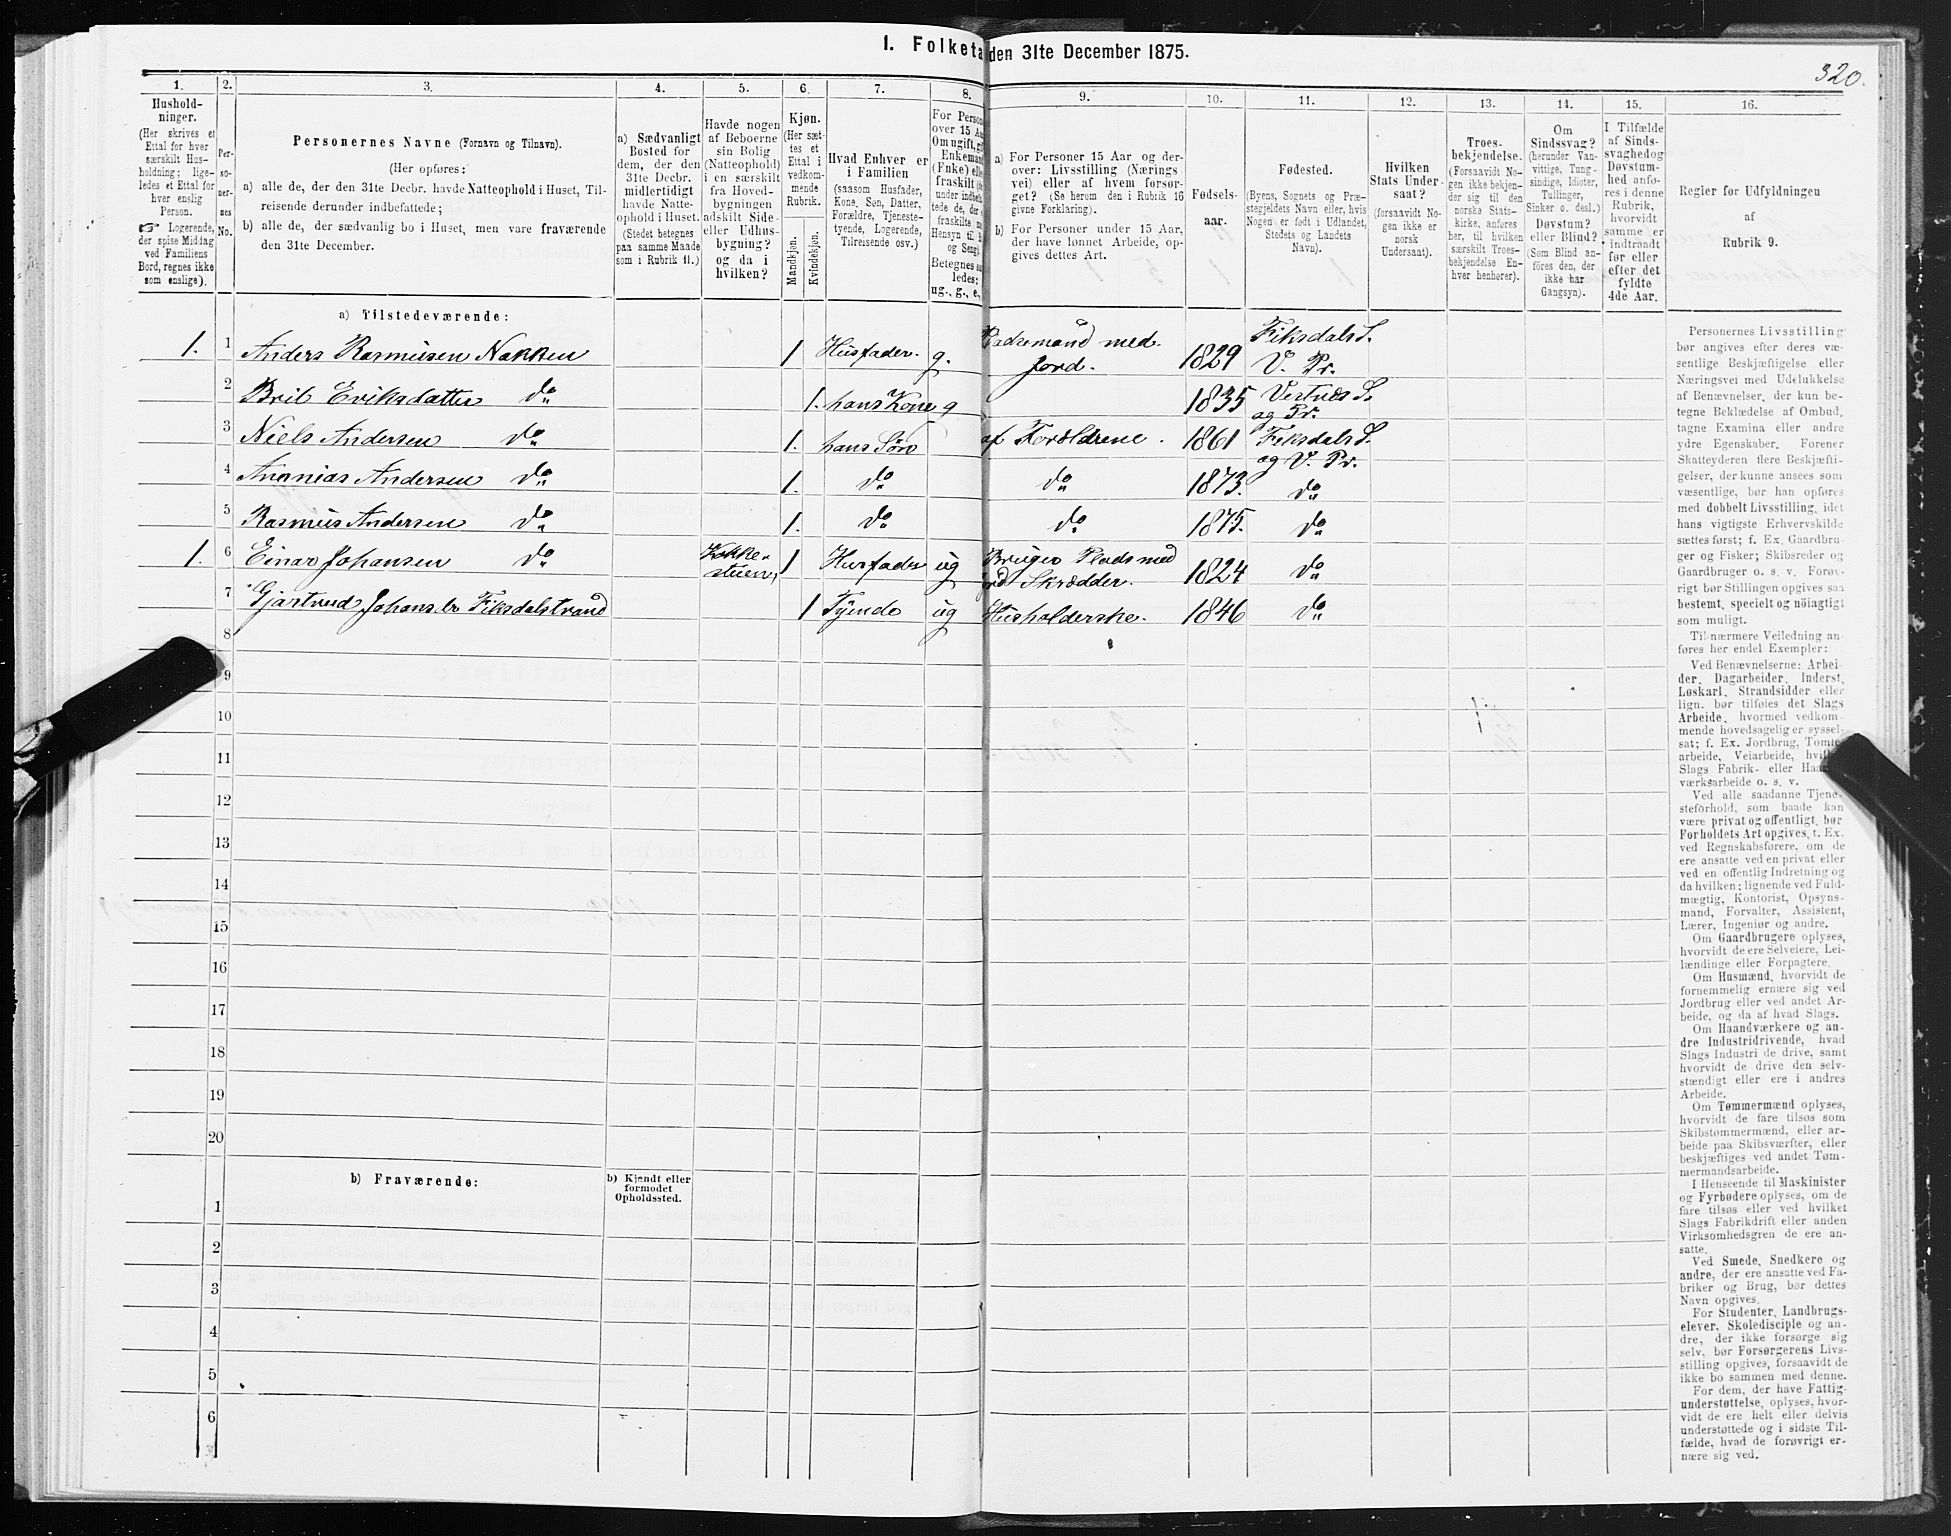 1. Folketa den 31te December 1875.
320.
1.
2.
3.
4.
5.
6.
7.
8.
9.
10.
11.
12.
13.
14.
15.
16.
Hushold-
ninger.
(Her skrives et
Ettal for hver
særskilt Hus-
holdning; lige-
ledes et Ettal for
hver enslig
Person.
☞ Logerende,
der spise Middag
ved Familiens
Bord, regnes ikke
som enslige).
Per-
so-
ner-
nes
No.
Personernes Navne (Fornavn og Tilnavn).
(Her opføres:
a) alle de, der den 31te Decbr. havde Natteophold i Huset, Til-
reisende derunder indbefattede;
b) alle de, der sædvanlig bo i Huset, men vare fraværende
den 31te December.
a) Sædvanligt
Bosted for
dem, der den
31te Decbr.
midlertidigt
havde Natte-
ophold i Huset.
(Stedet betegnes
paa samme Maade
som i Rubrik 11.)
Havde nogen
af Beboerne
sin Bolig
(Natteophold)
i en særskilt
fra Hoved-
bygningen
adskilt Side-
eller Udhus-
bygning?
og da i
hvilken?
Kjøn.
(Her sæt-
tes et
Ettal i
vedkom-
mende
Rubrik.
Mandkjøn.
Kvindekjøn.
Hvad Enhver er
i Familien
(saasom Husfader,
Kone, Søn, Datter,
Forældre, Tjeneste-
tyende, Logerende,
Tilreisende osv.)
For Person
over 15 Aa
Om ugift, gif
Enkeman
(Enke) ell
fraskilt (
under indbefa
tede de, der
fraskilte m
Hensyn til B
og Seng).
Betegnes sa
ledes:
ug., g., e.,
a) For Personer 15 Aar og der-
over: Livsstilling (Nærings
vei) eller af hvem forsør-
get? (Se herom den i Rubrik 16
givne Forklaring).
b) For Personer under 15 Aar,
der have lønnet Arbeide, op-
gives dettes Art.
Fødsels-
aar.
Fødested.
(Byens, Sognets og Præ-
stegjeldets Navn eller, hvis
Nogen er født i Udlandet,
Stedets og Landets
Navn).
Hvilken
Stats Under-
saat?
(forsaavidt No-
gen ikke er
norsk
Undersaat).
Troes-
bekjendelse.
(Forsaavidt No-
gen ikke bekjen-
der sig til den
norske Stats-
kirke, anføres
her, til hvilken
særskilt Troes-
bekjendelse En-
hver henhører).
Om
Sindssvag?
(herunder Van-
vittige, Tung-
sindige, Idioter,
Tullinger,
Sinker o. desl.)
Døvstum?
eller Blind?
(Som Blind an-
føres den, der
ikke har
Gangsyn).
I Tilfælde
af Sinds-
svaghed og
Døvstum-
hed anfø-
res i denne
Rubrik,
hvorvidt
samme er
indtraadt
før eller
efter det
fyldte
4de Aar.
Regler for Udfyldningen
af
Rubrik 9.
a) Tilstedeværende:
1. 1 Anders Rasmusen Nakken 1 Husfader g. Pladsemand med Jord. 1829 Fiksdals S. V. Pr.
2 Brit Eriksdatter do 1. hans Kone g 1835 Vestnæs S. og Pr.
3 Niels Andersen do 1. hans Søn af Forældrene. 1861 Fiksdals S. og V. Pr.
4 Ananias Andersen do 1. do do 1873. do
5 Rasmus Andersen do 1. do do 1875. do
1. 6 Einar Johansen do Kokke-stuen, 1 Husfader ug Bruger Plads med Jord Skrædder. 1824 do
7 Gjartrud Johansdr Fiksdalstrand 1 Tyende ug Husholderske. 1846 do
8
9
10
11
12
13
14
15
16
17
18
19
20
b) Fraværende:
b) Kjendt eller
formodet
Opholdssted.
1
2
3
4
5
6
Personernes Livsstilling
bør angives efter deres væ-
sentlige Beskjæftigelse eller
Næringsvei med Udelukkelse
af Benævnelser, der kun be-
tegne Beklædelse af Ombud,
tagne Examina eller andre
ydre Egenskaber. Forener
Skatteyderen flere Beskjæfti-
gelser, der kunne ansees som
væsentlige, bør han opføres
med dobbelt Livsstilling, idet
hans vigtigste Erhvervskilde
sættes først; f. Ex. Gaardbru-
ger og Fisker; Skibsreder og
Gaardbruger o. s. v. Forøv-
rigt bør Stillingen opgives saa
bestemt, specielt og nöiagtigt
som muligt.
Til nærmere Veiledning an-
føres her endel Exempler:
Ved Benævnelserne: Arbei-
der, Dagarbeider, Inderst,
Løskarl, Strandsidder eller
lign. bør tilføies det Slags
Arbeide, hvormed vedkom-
mende hovedsagelig er syssel-
sat; f. Ex. Jordbrug, Tomte-
arbeide, Veiarbeide, hvilket
Slags Fabrik- eller Haand-
værksarbeide o. s. v.
Ved alle saadanne Tjene-
steforhold, som baade kan
være privat og offentligt, bør
Forholdets Art opgives, t. Ex.
ved Regnskabsførere, om de
ere ansatte ved en privat eller
ved en offentlig Indretning og
da hvilken; lignende ved Fuld-
mægtig, Kontorist, Opsyns-
mand, Forvalter, Assistent,
Lærer, Ingeniør og andre.
Om Gaardbrugere oplyses,
hvorvidt de ere Selveiere, Lei-
lændinge eller Forpagtere.
Om Husmænd, hvorvidt de
fornemmelig ernære sig ved
Jordbrug eller ved andet Ar-
beide, og da af hvad Slags.
Om Haandværkere og an-
dre Industridrivende, hvad
Slags Industri de drive, samt
hvorvidt de drive den selv-
stændigt eller ere i andres
Arbeide.
Om Tømmermænd oplyses,
hvorvidt de fare tilsøs som
Skibstømmermænd, eller ar-
beide paa Skibsværfter, eller
beskjæftiges ved andet Tøm-
mermandsarbeide.
I Henseende til Maskinister
og Fyrbødere oplyses, om de
fare tilsøs eller ved hvilket
Slags Fabrikdrift eller anden
Virksomhedsgren de ere an-
satte.
Ved Smede, Snedkere og
andre, der ere ansatte ved Fa-
briker og Brug, bør dettes
Navn opgives.
For Studenter, Landbrugs-
elever, Skoledisciple og an-
dre, der ikke forsørge sig
selv, bør Forsørgerens Livs-
stilling opgives, forsaavidt de
ikke bo sammen med denne.
For dem, der have Fattig-
understøttelse, oplyses, hvor-
vidt de ere helt eller delvis
understøttede og i sidste Til-
fælde, hvad de forøvrigt er-
nære sig ved.